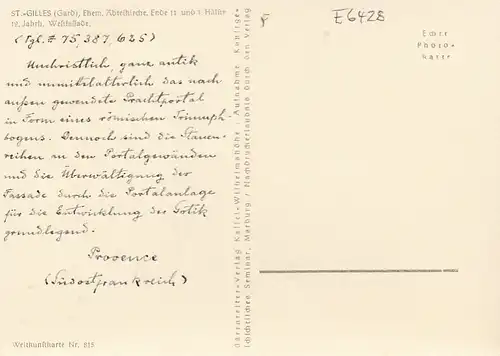 ST.-GILLES (Gard), Ehem. Abteikirche. Ende 11. und 1. Hälfte
12. Jahrh. Westfassade.
(Vgl. # 75, 387, 625)
Unchristlich, ganz antik
und unmittelalterlich das nach
außen gewendete Prachtportal
in Form eines römischen Triumph-
bogens. Dennoch sind die
reihen an den Portalgewänden
und die Überwältigung der
Fassade durch die Portalanlage
für die Entwicklung der Gotik
grundlegend.
Provence
(Südostfrankreich)
Weltkunstkarte Nr. 815
Bärenreiter-Verlag Kassel-Wilhelmshöhe / Aufnahme Kunstge-
schichtliches Seminar, Marburg / Nachdruckerlaubnis durch den Verlag
F
E6428
Echte
Photo-
karte